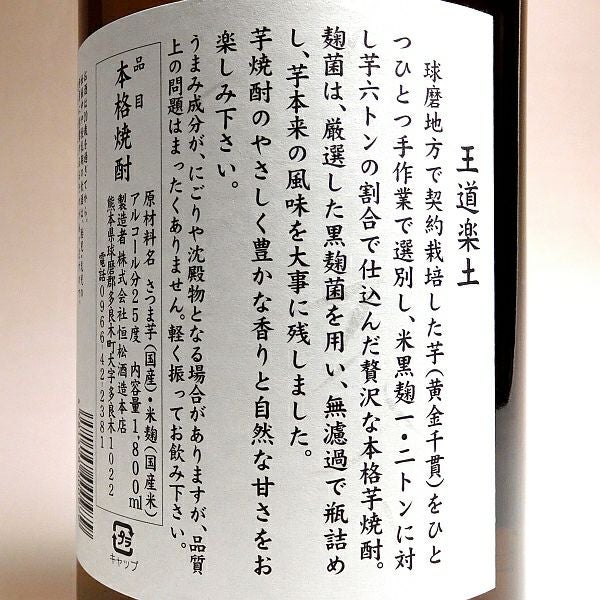 王道楽土
球磨地方で契約栽培した芋(黄金千貫)をひと
つひとつ手作業で選別し、米黒麹一・二トンに対
し芋六トンの割合で仕込んだ贅沢な本格芋焼酎。
麹菌は、厳選した黒麹菌を用い、無濾過で瓶詰め
し、芋本来の風味を大事に残しました。
芋焼酎のやさしく豊かな香りと自然な甘さをお
楽しみ下さい。
うまみ成分が、にごりや沈殿物となる場合がありますが、品質
上の問題はまったくありません。軽く振ってお飲み下さい。
品目
本格焼酎
原材料名 さつま芋(国産)・米麹(国産米)
アルコール分25度 内容量1,800ml
製造者 株式会社恒松酒造本店
熊本県球磨郡多良木町大字多良木1022
電話0966-42-2381
プラ
キャップ